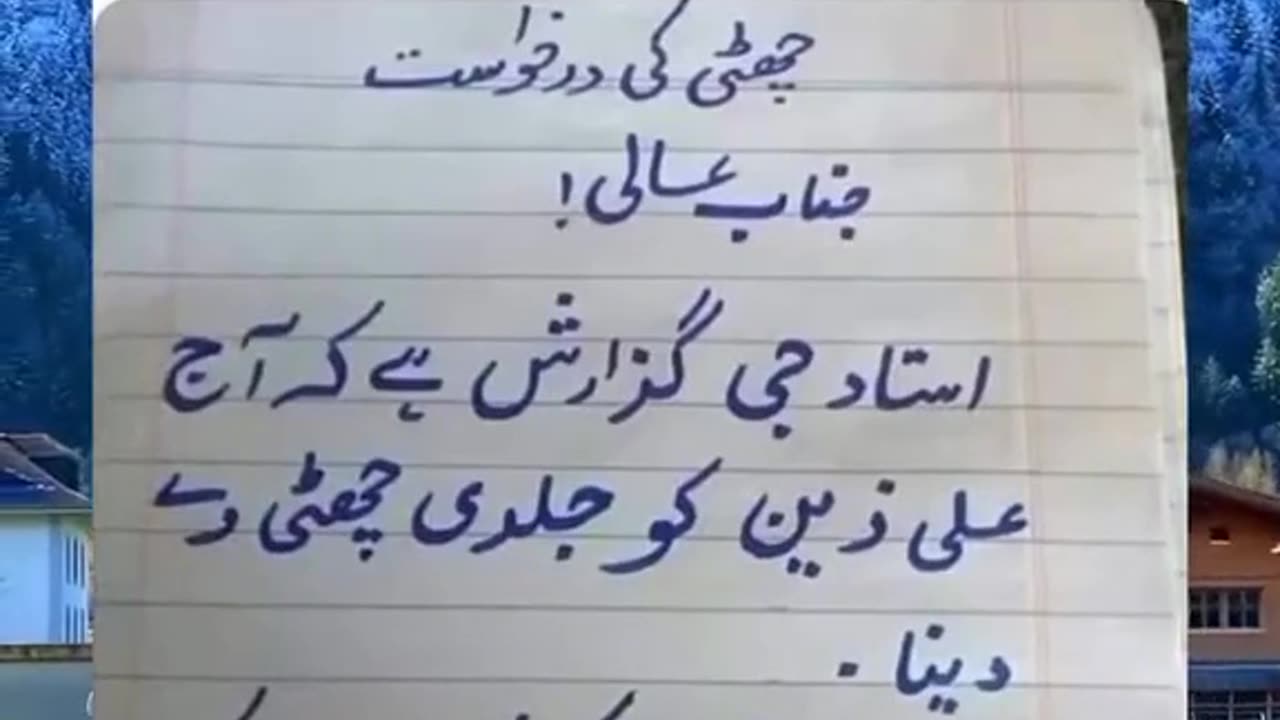 چھٹی کی درخواست
جناب عالی!
استاد جی گزارش ہے کہ آج
علی ذین کو جلدی چھٹی دے
دینا.